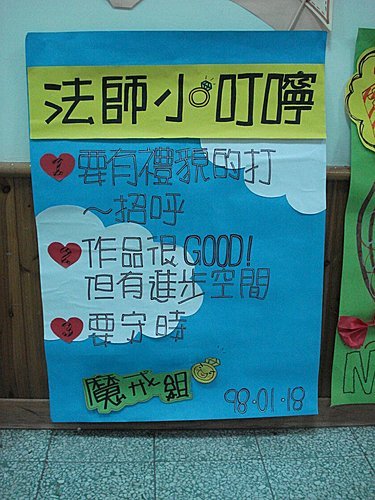 法師小叮嚀
要有禮貌的打
～招呼
作品很GOOD!
但有進步空間
要守時
魔戒組
98.01.18